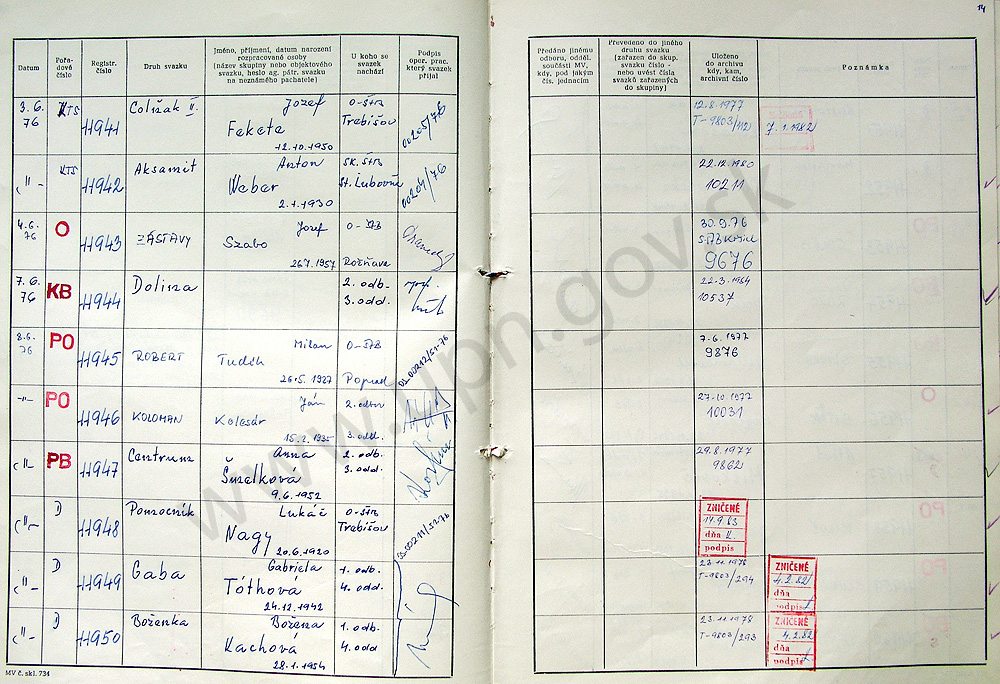 14
Datum
Pořa-
dové
číslo
Registr.
číslo
Druh svazku
Jméno, příjmení, datum narození
rozpracované osoby
(název skupiny nebo objektového
svazku, heslo ag. pátr. svazku
na neznámého pachatele)
U koho se
svazek
nachází
Podpis
oper. prac.
který svazek
přijal
Předáno jinému
odboru, odděl.
součásti MV,
kdy, pod jakým
čís. jednacím
Převedeno do jiného
druhu svazku
(zařazen do skup.
svazku číslo -
nebo uvést čísla
svazků zařazených
do skupiny)
Uloženo
do archivu
kdy, kam,
archivní číslo
Poznámka
3.6.
76
KTS
11941
Colížak II.
Jozef
Fekete
12.10.1950
O-ŠTB
Trebišov
00205/76
12.8.1977
T-9803/112
7.1.1982
-"-
KTS
11942
Aksamit
Anton
Weber
2.1.1930
St. Ľubovňa
00204/76
22.12.1980
10211
4.6.
76
O
11943
ZÁSTAVY
Jozef
Szabo
26.7.1957
O-ŠTB
Rožňava
30.9.76
9676
7.6.
76
KB
11944
Dolina
2. odb.
3. odd.
22.3.1984
10537
8.6.
76
PO
11945
ROBERT
Milan
Tudík
26.5.1927
O-ŠTB
Poprad
7.6.1977
9876
-"-
PO
11946
KOLOMAN
Ján
Kolesár
15.2.1935
2. odbor
3. odd.
27.10.1977
10031
-"-
PB
11947
Centrum
Anna
Šuzelková
9.6.1952
2. odb.
3. odd.
29.8.1977
9862
-"-
D
11948
Pomocník
Lukáč
Nagy
20.6.1920
O-ŠTB
Trebišov
ZNIČENÉ
dňa
podpis
-"-
D
11949
Gaba
Gabriela
Tóthová
24.12.1942
1. odb.
4. odd.
23.11.1978
T-9803/294
ZNIČENÉ
4.2.82
dňa
podpis
-"-
D
11950
Boženka
Božena
Kachová
28.1.1954
1. odb.
4. odd
23.11.1978
T-9803/293
ZNIČENÉ
4.2.82
dňa
podpis
MV č. skl. 734
www.upn.gov.sk